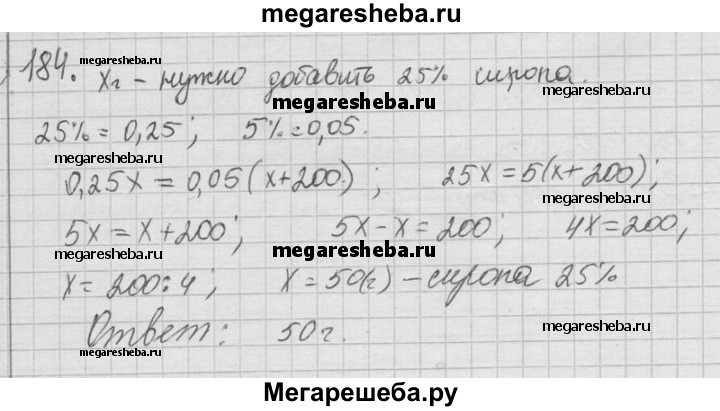 megaresheba.ru
184. xг - нужно добавить 25% сиропа.
megaresheba.ru
megaresheba.ru
megaresheba.ru
25% = 0,25; 5% = 0,05.
megaresheba.ru
megaresheba.ru
0,25x = 0,05(x+200); 25x = 5(x+200);
megaresheba.ru
5x = x+200; 5x-x = 200; 4x = 200;
megaresheba.ru
megaresheba.ru
x = 200:4; x = 50(г) - сиропа 25%
megaresheba.ru
megaresheba.ru
Ответ: 50г.
megaresheba.ru
Мегарешеба.ру